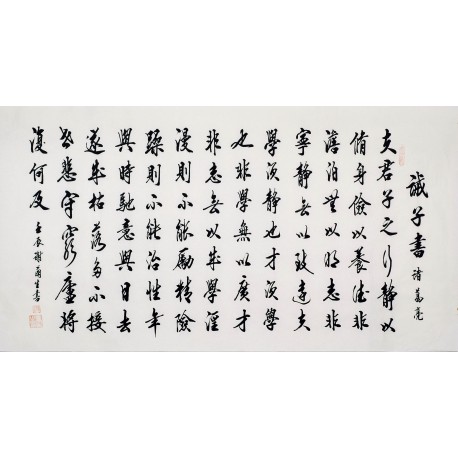 誡子書 諸葛亮
夫君子之行静以
脩身儉以養德非
澹泊無以明志非
寧静無以致遠夫
學須静也才須學
也非學無以廣才
非志無以成學淫
浸則不能勵精險
躁則不能治性年
與時馳意與日去
遂成枯落多不接
世悲守窮廬將
復何及 壬辰 書